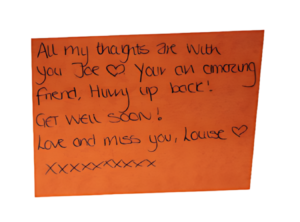 All my thoughts are with
you Joe ♡ Your an amazing
friend, Hurry up back!
GET WELL SOON!
Love and miss you, Louise ♡
xxxxxxxxxx